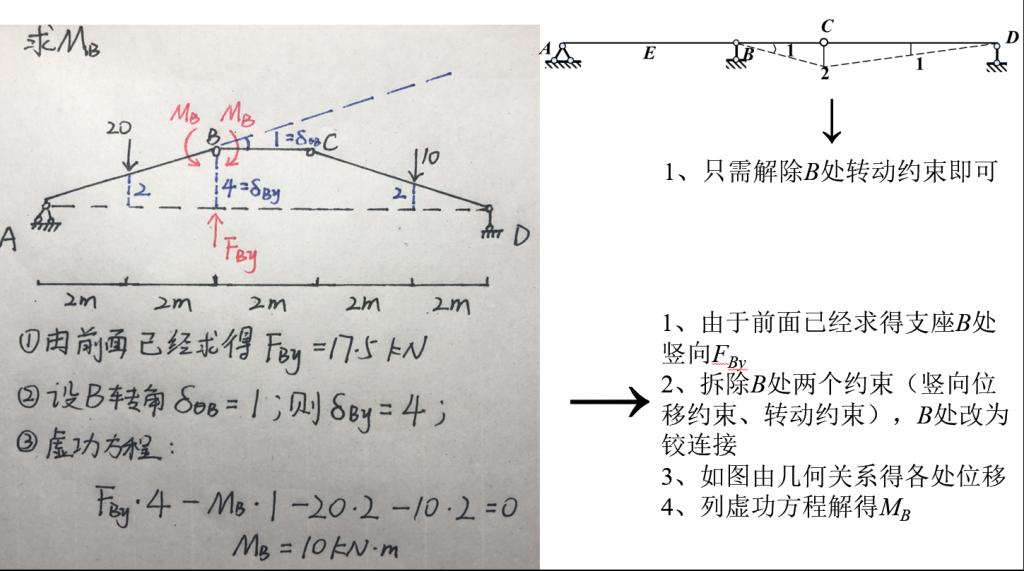 求M_B
20
M_B M_B
B
1=δ_θB
C
10
2
4=δ_By
2
A
F_By
D
2m 2m 2m 2m 2m
①由前面已经求得 F_By = 17.5 kN
②设B转角 δ_θB = 1 ;则 δ_By = 4 ;
③虚功方程:
F_By·4 - M_B·1 - 20·2 - 10·2 = 0
M_B = 10 kN·m
C
A
E
B
1
2
1
D
1、只需解除B处转动约束即可
1、由于前面已经求得支座B处
竖向F_By
2、拆除B处两个约束（竖向位
移约束、转动约束），B处改为
铰连接
3、如图由几何关系得各处位移
4、列虚功方程解得M_B